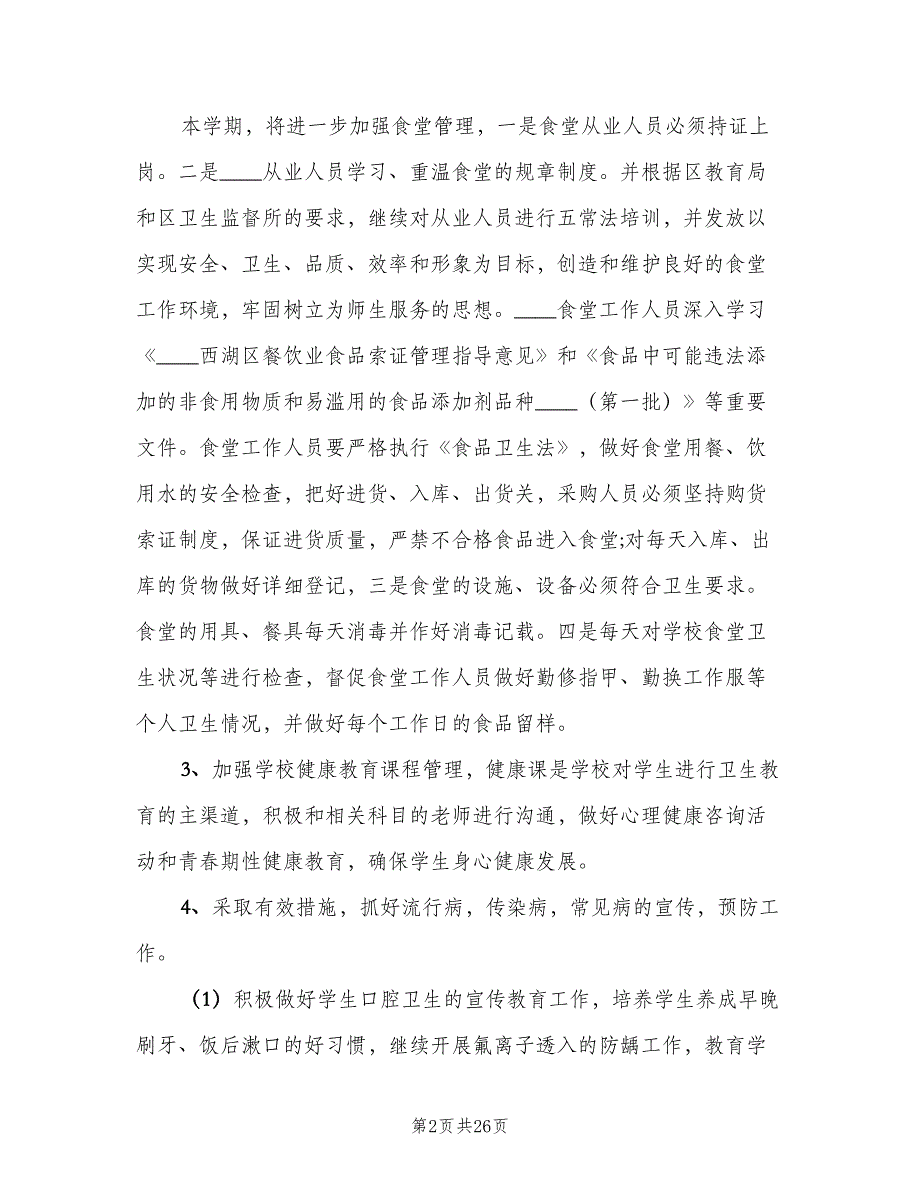 本学期，将进一步加强食堂管理，一是食堂从业人员必须持证上
岗。二是____从业人员学习、重温食堂的规章制度。并根据区教育局
和区卫生监督所的要求，继续对从业人员进行五常法培训，并发放以
实现安全、卫生、品质、效率和形象为目标，创造和维护良好的食堂
工作环境，牢固树立为师生服务的思想。____食堂工作人员深入学习
《____西湖区餐饮业食品索证管理指导意见》和《食品中可能违法添
加的非食用物质和易滥用的食品添加剂品种____（第一批）》等重要
文件。食堂工作人员要严格执行《食品卫生法》，做好食堂用餐、饮
用水的安全检查，把好进货、入库、出货关，采购人员必须坚持购货
索证制度，保证进货质量，严禁不合格食品进入食堂;对每天入库、出
库的货物做好详细登记，三是食堂的设施、设备必须符合卫生要求。
食堂的用具、餐具每天消毒并作好消毒记载。四是每天对学校食堂卫
生状况等进行检查，督促食堂工作人员做好勤修指甲、勤换工作服等
个人卫生情况，并做好每个工作日的食品留样。
3、加强学校健康教育课程管理，健康课是学校对学生进行卫生教
育的主渠道，积极和相关科目的老师进行沟通，做好心理健康咨询活
动和青春期性健康教育，确保学生身心健康发展。
4、采取有效措施，抓好流行病，传染病，常见病的宣传，预防工
作。
（1）积极做好学生口腔卫生的宣传教育工作，培养学生养成早晚
刷牙、饭后漱口的好习惯，继续开展氟离子透入的防龋工作，教育学
第2页共26页